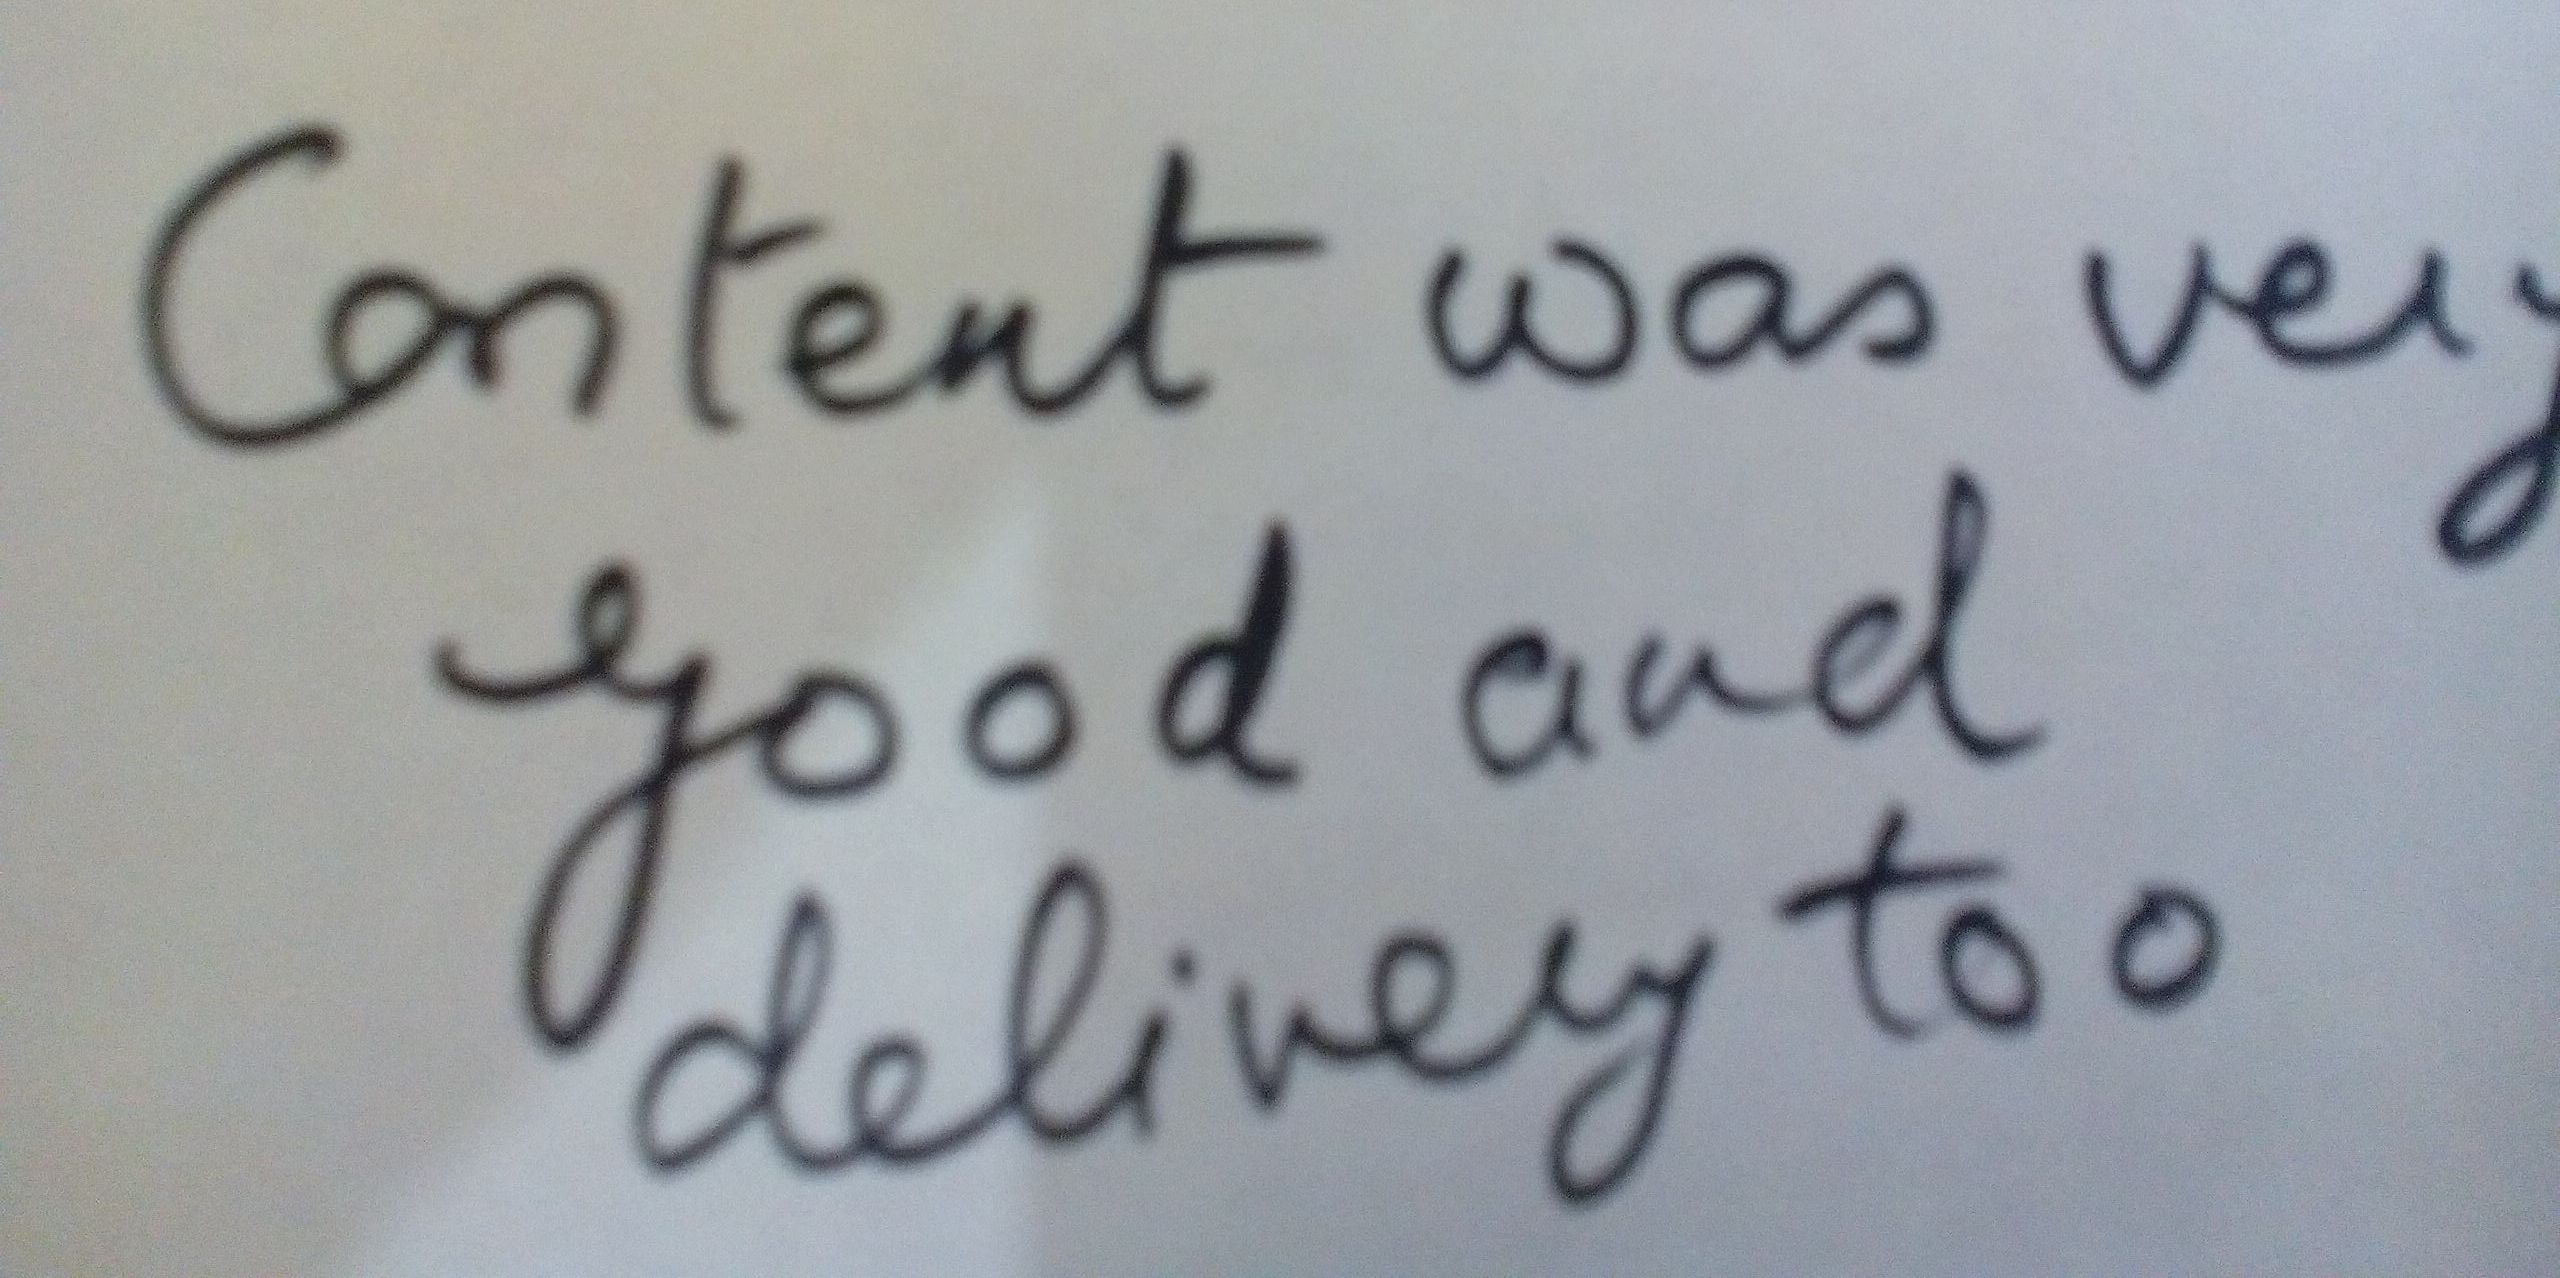 Content was very
good and
delivery too